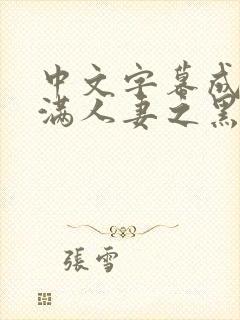 中文字幕成
满人妻之黑
張雪